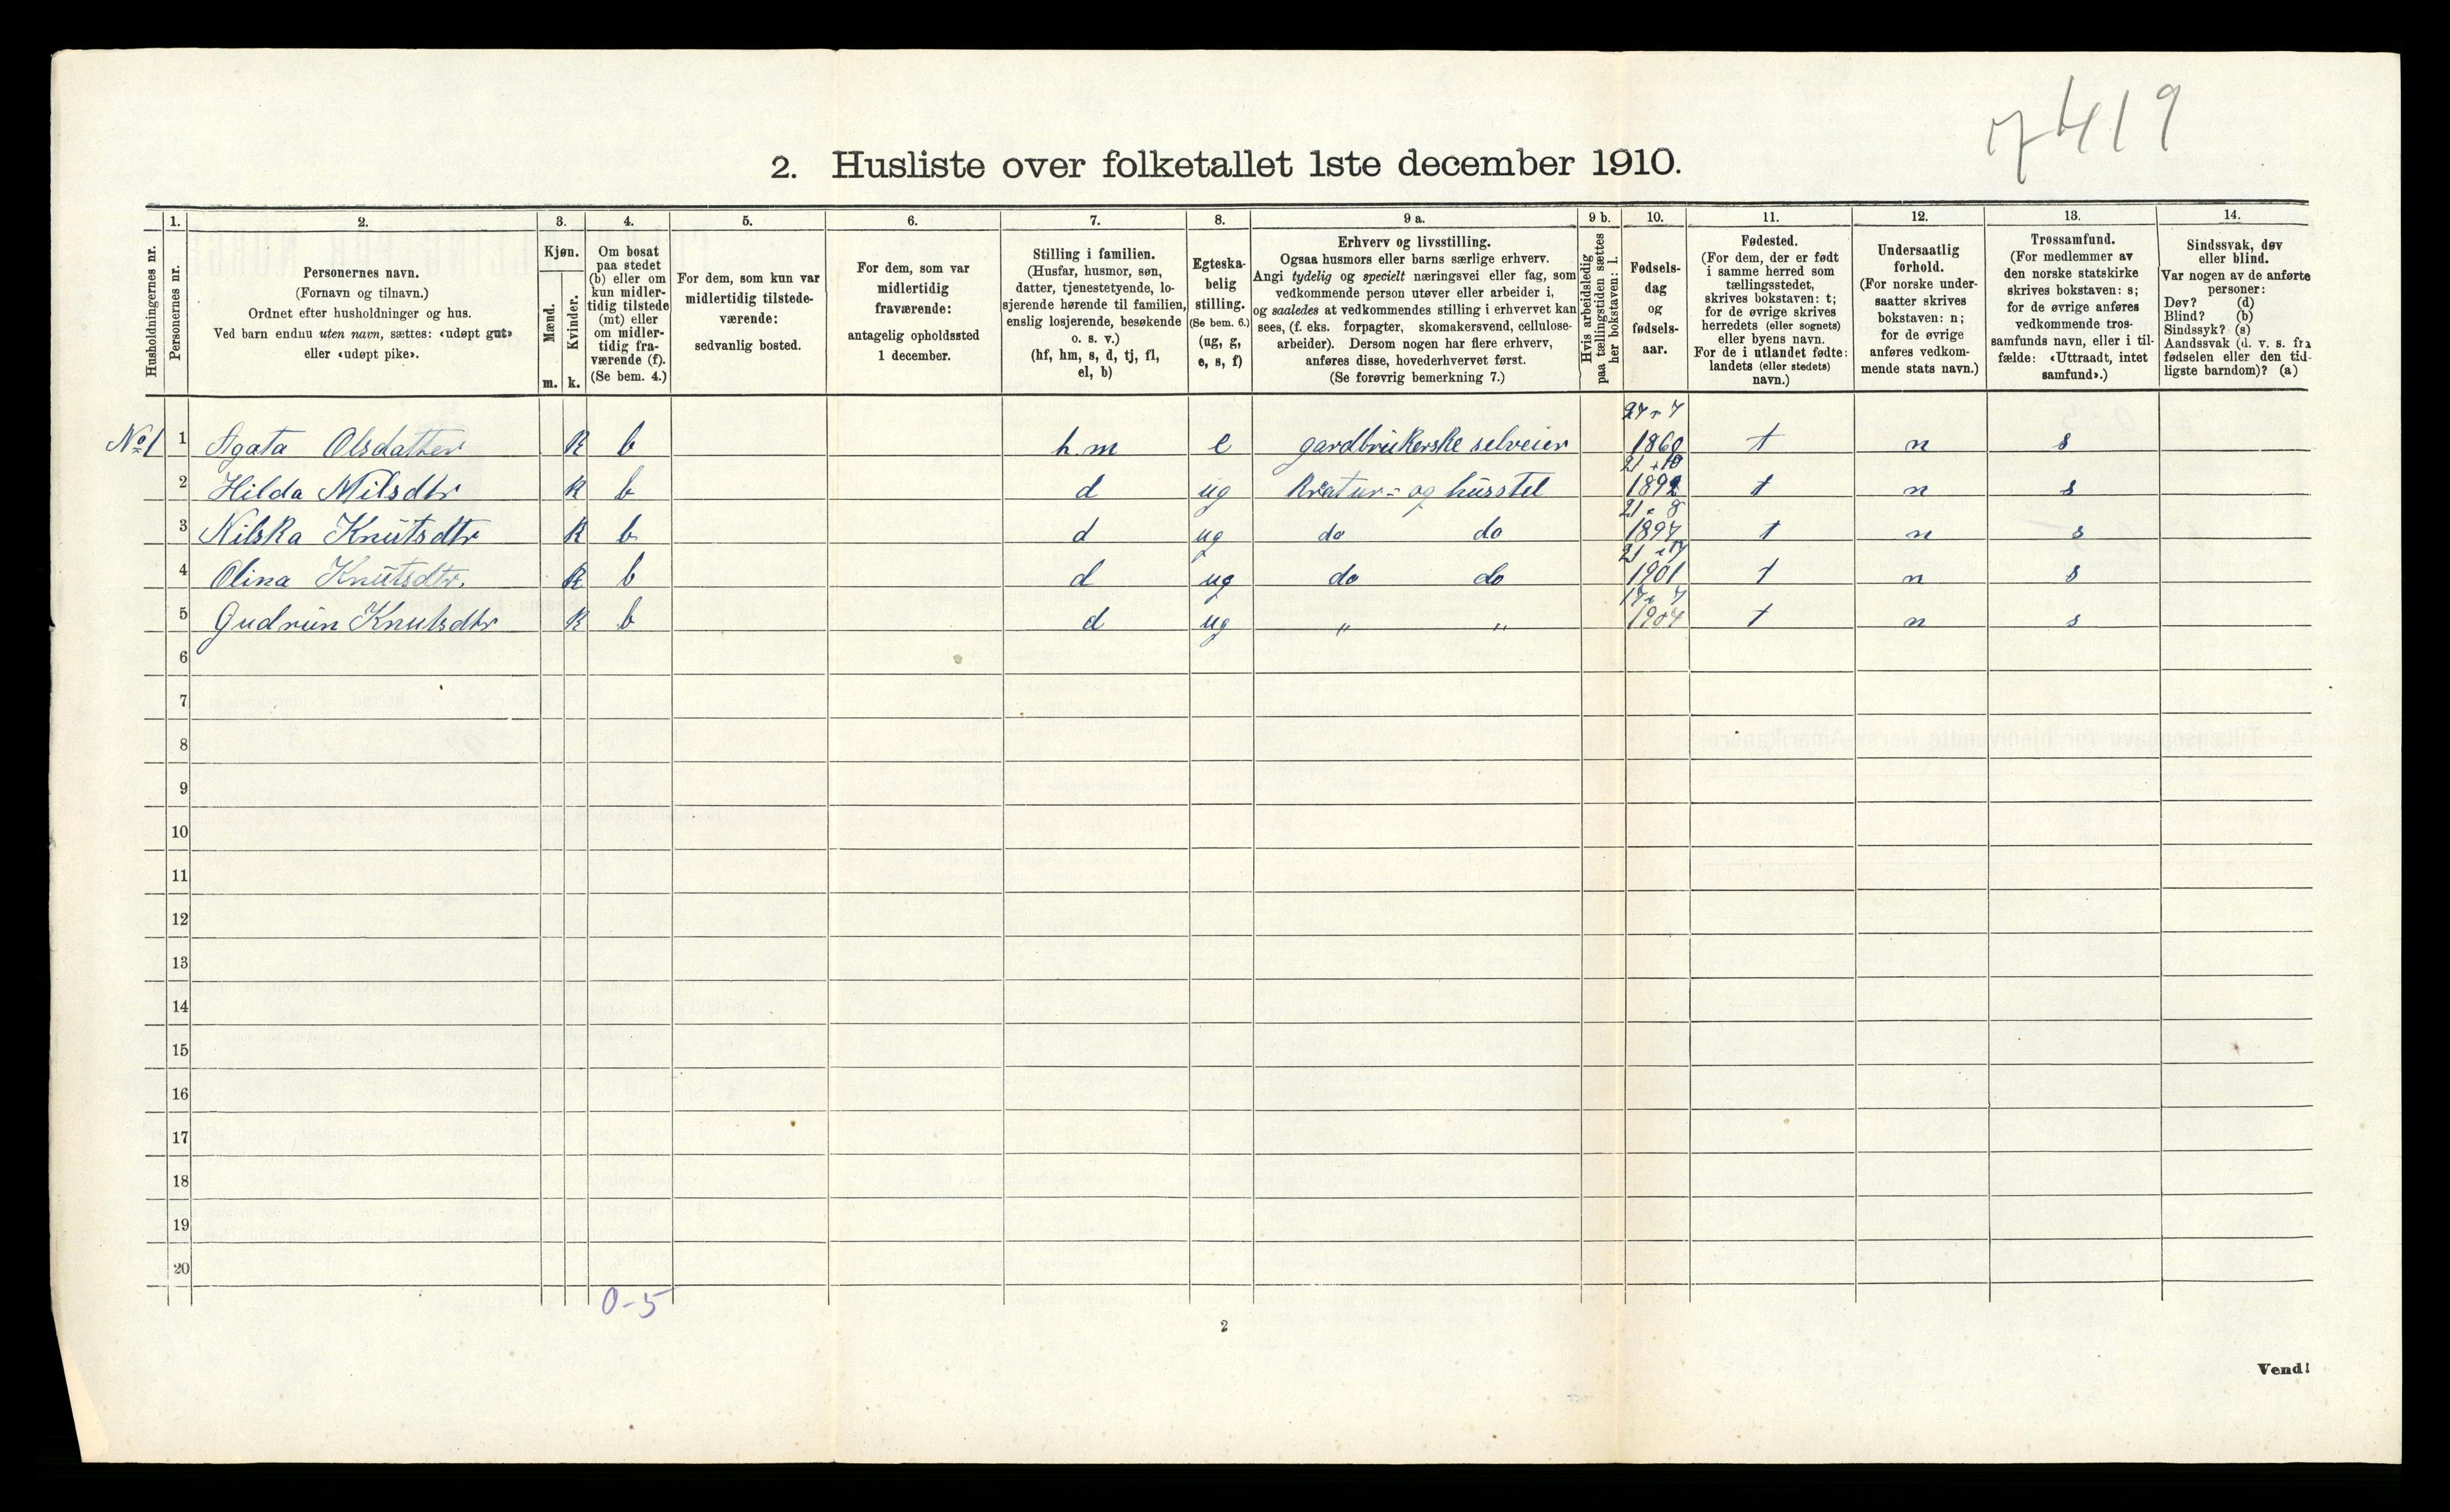 7419
2. Husliste over folketallet 1ste december 1910.
Husholdningernes nr.
1.
Personernes nr.
2.
Personernes navn.
(Fornavn og tilnavn.)
Ordnet efter husholdninger og hus.
Ved barn endnu uten navn, sættes: «udøpt gut»
eller «udøpt pike».
3.
Kjøn.
Mænd.
m.
Kvinder.
k.
4.
Om bosat
paa stedet
(b) eller om
kun midler-
tidig tilstede
(mt) eller
om midler-
tidig fra-
værende (f).
(Se bem. 4.)
5.
For dem, som kun var
midlertidig tilstede-
værende:
sedvanlig bosted.
6.
For dem, som var
midlertidig
fraværende:
antagelig opholdssted
1 december.
7.
Stilling i familien.
(Husfar, husmor, søn,
datter, tjenestetyende, lo-
sjerende hørende til familien,
enslig losjerende, besøkende
o. s. v.)
(hf, hm, s, d, tj, fl,
el, b)
8.
Egteska-
belig
stilling.
(Se bem. 6.)
(ug, g,
e, s, f)
9 a.
Erhverv og livsstilling.
Ogsaa husmors eller barns særlige erhverv.
Angi tydelig og specielt næringsvei eller fag, som
vedkommende person utøver eller arbeider i,
og saaledes at vedkommendes stilling i erhvervet kan
sees, (f. eks. forpagter, skomakersvend, cellulose-
arbeider). Dersom nogen har flere erhverv,
anføres disse, hovederhvervet først.
(Se forøvrig bemerkning 7.)
9 b.
Hvis arbeidsledig
paa tællingstiden sættes
her bokstaven: l.
10.
Fødsels-
dag
og
fødsels-
aar.
11.
Fødested.
(For dem, der er født
i samme herred som
tællingsstedet,
skrives bokstaven: t;
for de øvrige skrives
herredets (eller sognets)
eller byens navn.
For de i utlandet fødte:
landets (eller stedets)
navn.)
12.
Undersaatlig
forhold.
(For norske under-
saatter skrives
bokstaven: n;
for de øvrige
anføres vedkom-
mende stats navn.)
13.
Trossamfund.
(For medlemmer av
den norske statskirke
skrives bokstaven: s;
for de øvrige anføres
vedkommende tros-
samfunds navn, eller i til-
fælde: «Uttraadt, intet
samfund».)
14.
Sindssvak, døv
eller blind.
Var nogen av de anførte
personer:
Døv? (d)
Blind? (b)
Sindssyk? (s)
Aandssvak (d. v. s. fra
fødselen eller den tid-
ligste barndom)? (a)
27 - 7
No 1 1 Agata Olsdatter K b hm e gardbrukerske selveier 1860 t n s
21 - 10
2 Hilda Nilsdtr K b d ug Kreatur- og husstel 1892 t n s
21 - 8
3 Nilska Knutsdtr K b d ug do do 1897 t n s
21
4 Olina Knutsdtr. K b d ug do do 1901 t n s
17 - 7
5 Gudrun Knutsdtr K b d ug " " 1904 t n s
6
7
8
9
10
11
12
13
14
15
16
17
18
19
20
0-5
2
Vend!